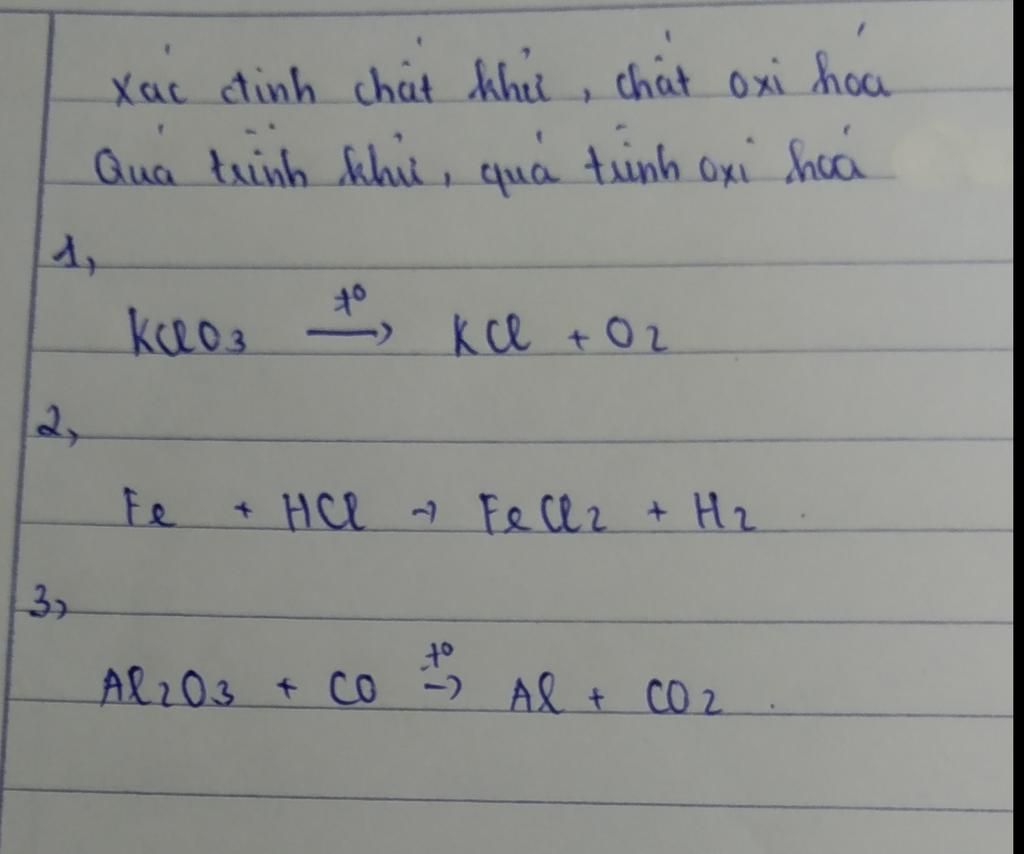 Xác định chất khử, chất oxi hóa
Quá trình khử, quá trình oxi hoá
1,
KClO3 t° → KCl + O2
2,
Fe + HCl → FeCl2 + H2.
3,
Al2O3 + CO t° → Al + CO2.